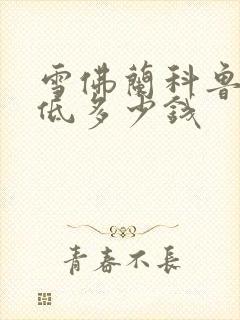 雪佛蘭科魯
低多少錢
青春不長